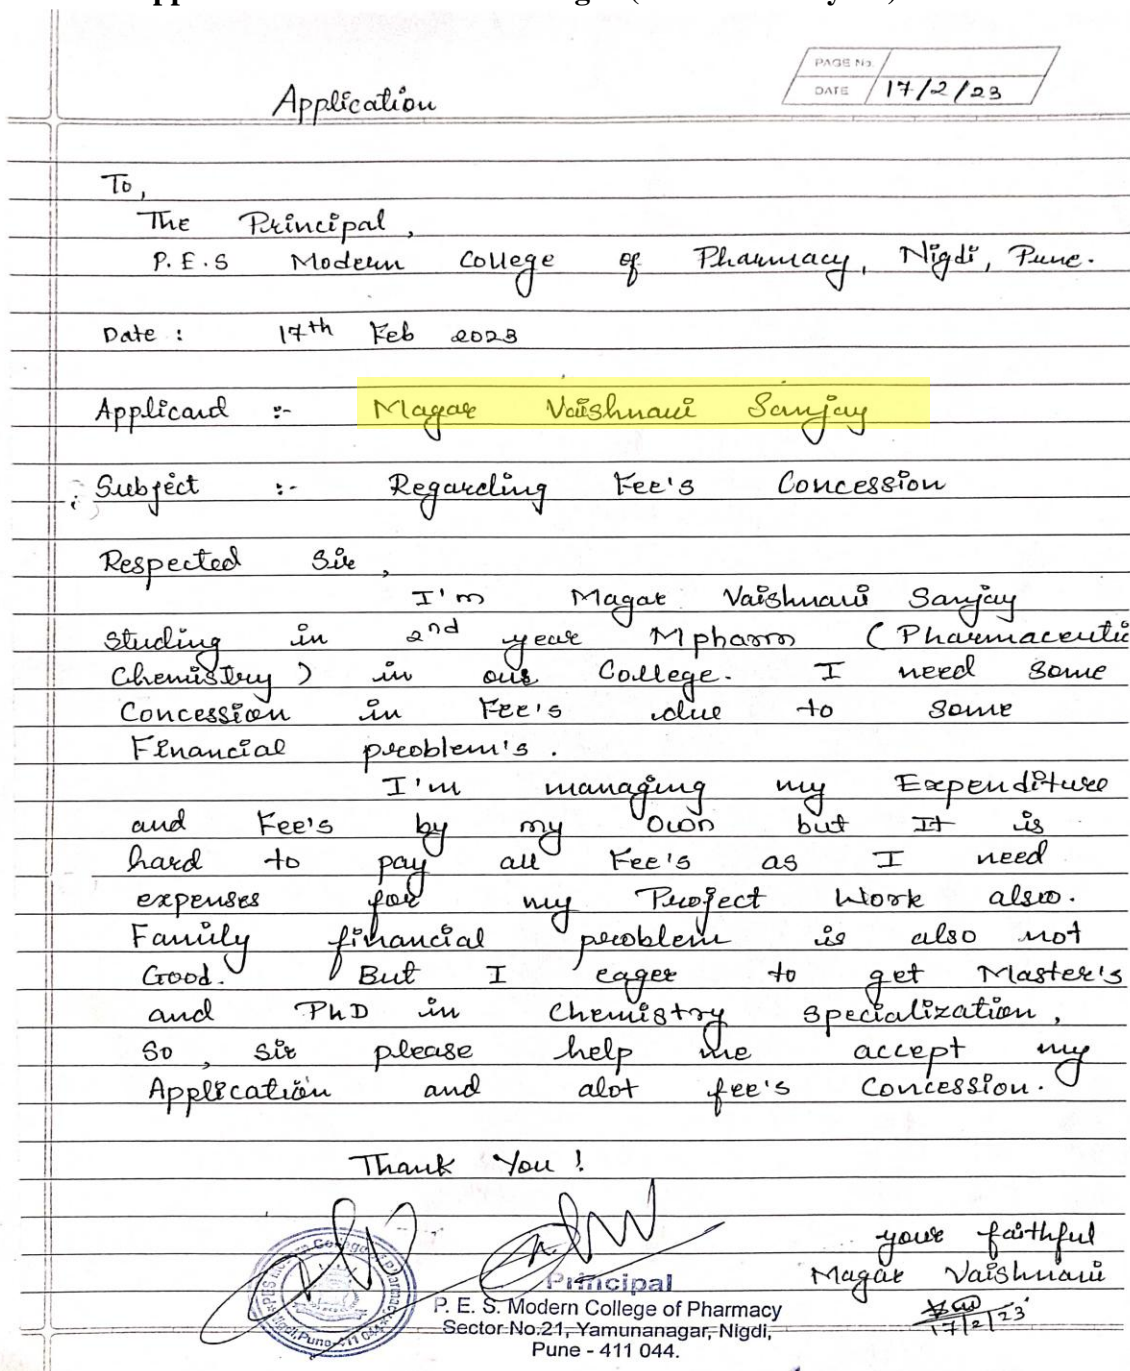 PAGE No.
DATE 17/2/23
Application
To,
The Principal,
P.E.S Modern College of Pharmacy, Nigdi, Pune.
Date : 17th Feb 2023
Applicand :- Magar Vaishnavi Sanjay
Subject :- Regarding Fee's Concession
Respected Sir,
I'm Magar Vaishnavi Sanjay
studing in 2nd year Mpharm (Pharmaceutic
Chemistry) in our College. I need some
Concession in Fee's due to some
Financial problem's.
I'm managing my Expenditure
and Fee's by my own but It is
hard to pay all Fee's as I need
expenses for my Project Work also.
Family financial problem is also not
Good. But I eager to get Master's
and PhD in Chemistry specialization,
So, sir please help me accept my
Application and alot fee's Concession.
Thank You!
your faithful
Magar Vaishnavi
17/2/23
Principal
P. E. S. Modern College of Pharmacy
Sector No.21, Yamunanagar, Nigdi,
Pune - 411 044.